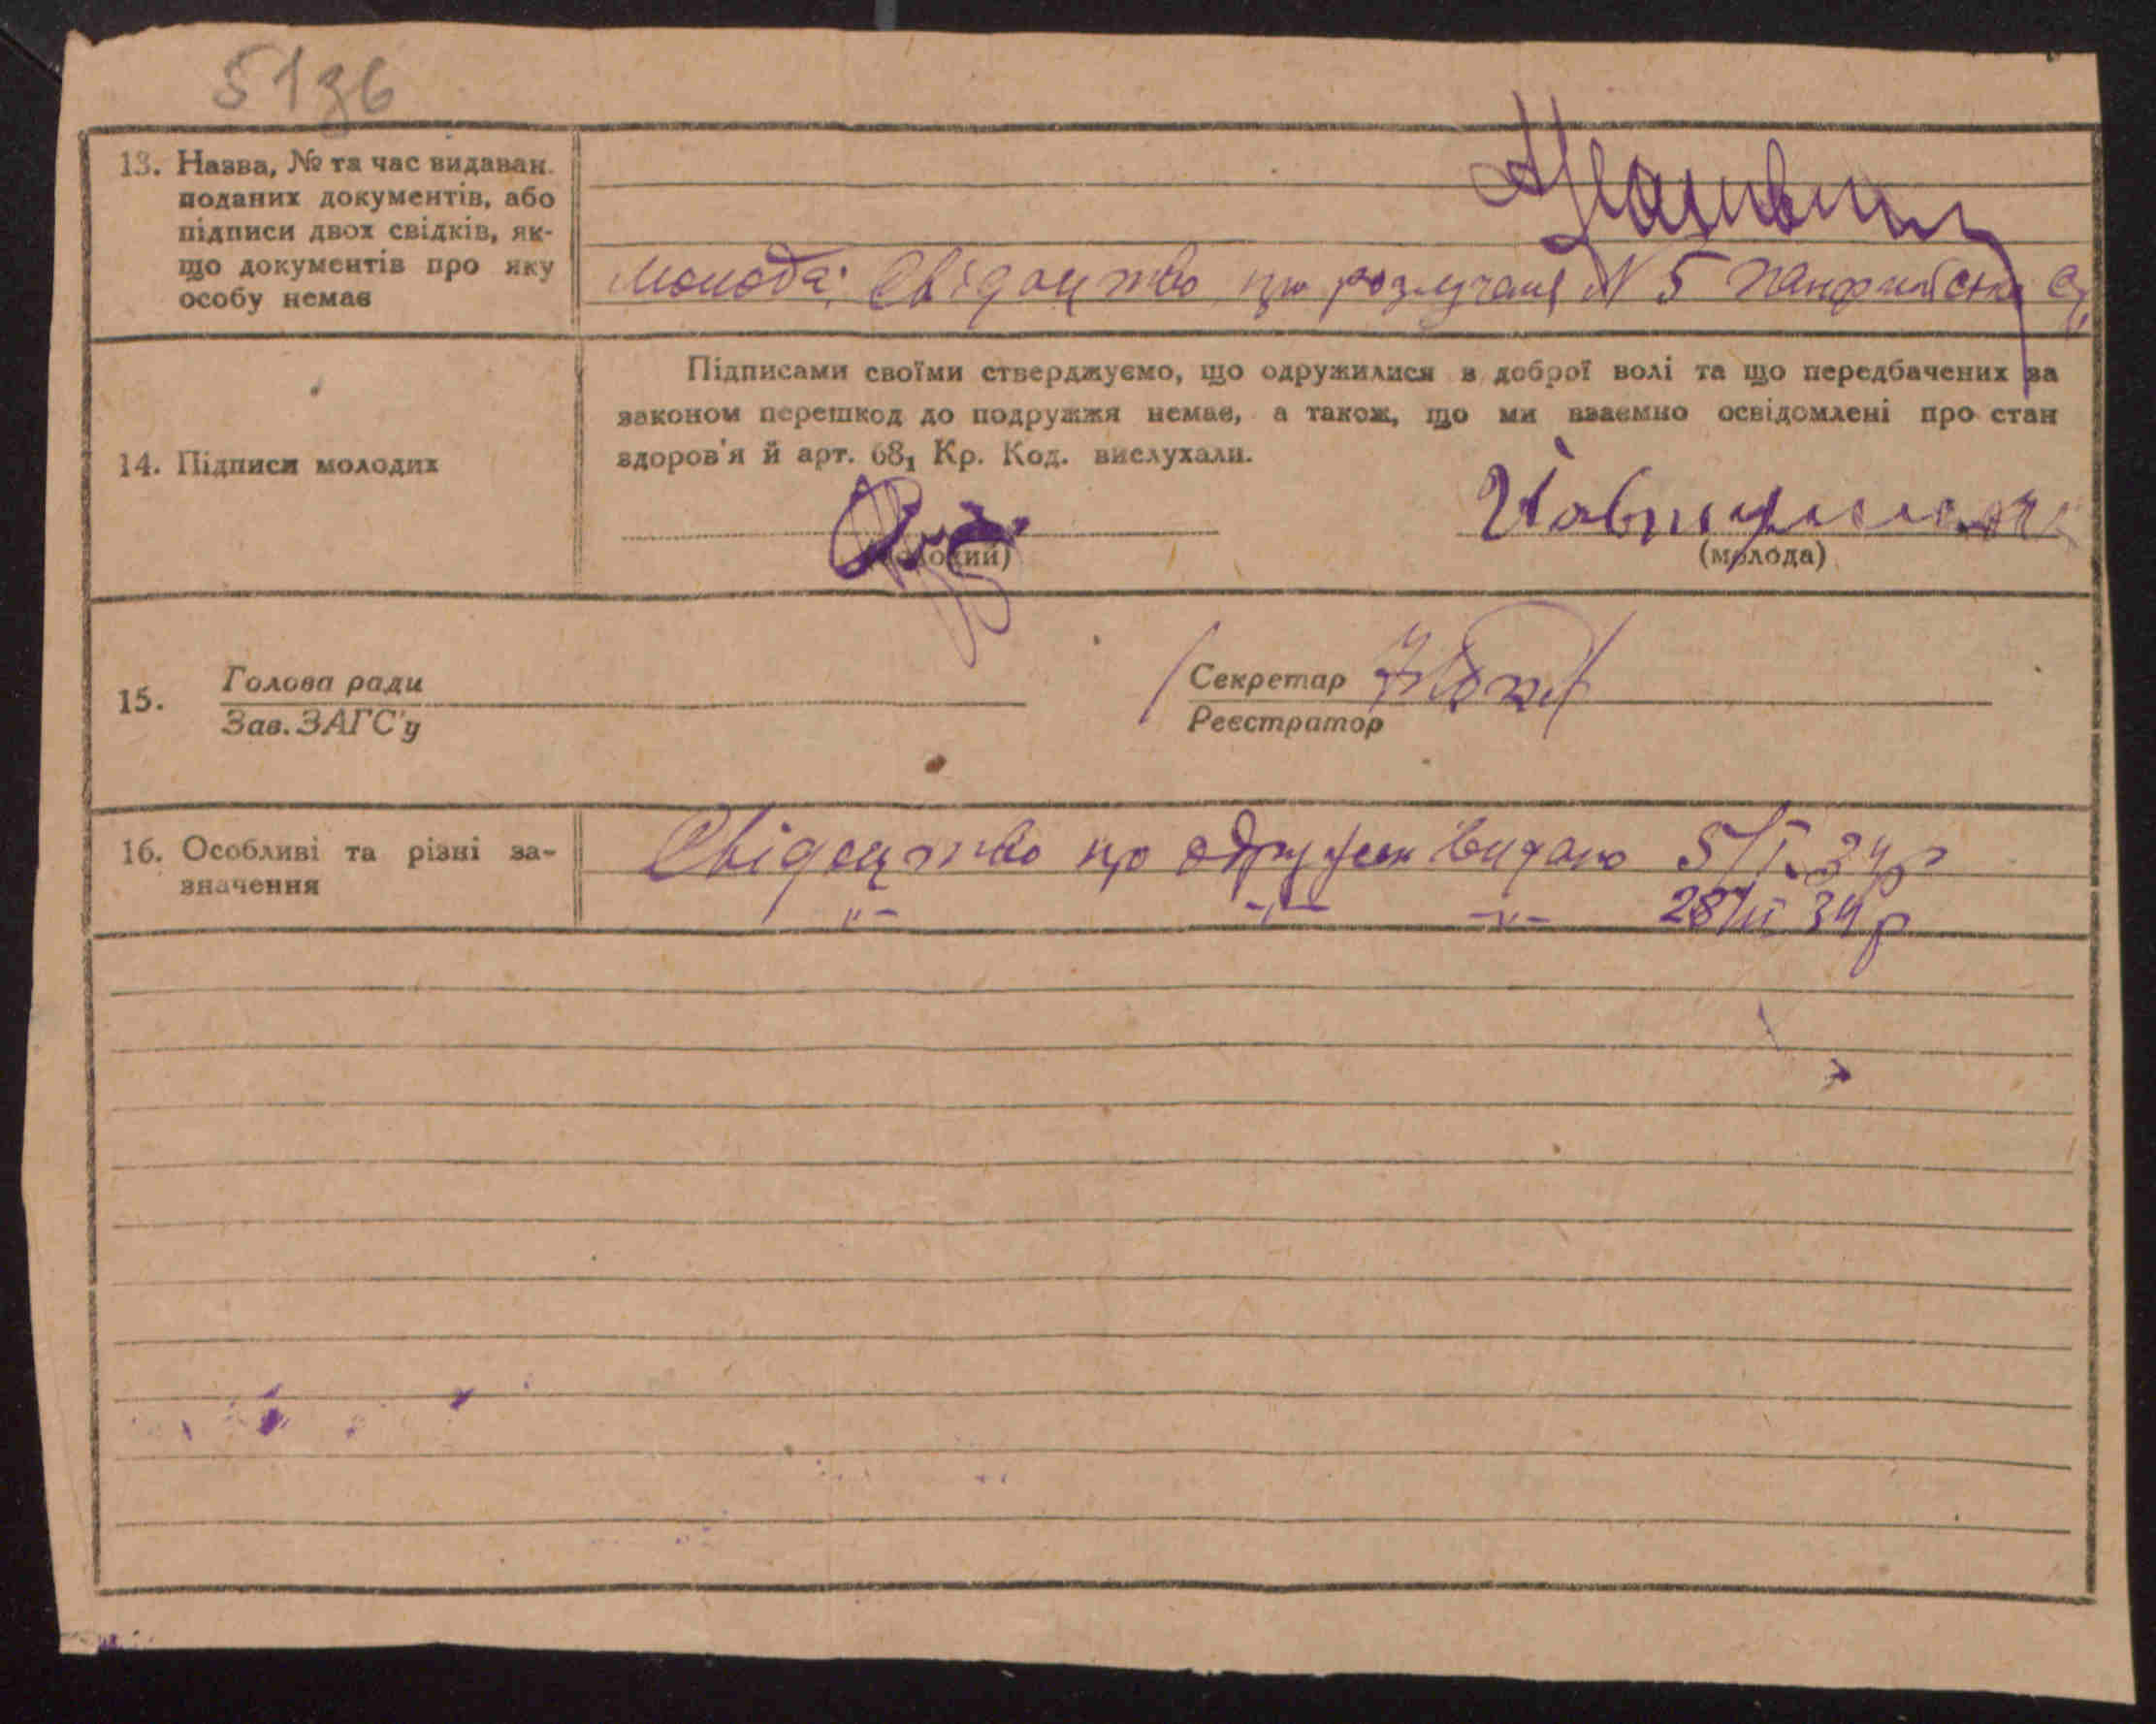 51зв
13. Назва, № та час видаван.
поданих документів, або
підписи двох свідків, як-
що документів про яку
особу немає
Молода: Свідоцтво про розлучання N 5
14. Підписи молодих
Підписами своїми стверджуємо, що одружилися з доброї волі та що передбачених за
законом перешкод до подружжя немає, а також, що ми взаємно освідомлені про стан
здоров'я й арт. 68₁ Кр. Код. вислухали.
(молодий)
(молода)
15.
Голова ради
Зав. ЗАГС'у
Секретар
Реєстратор
16. Особливі та різні за-
значення
Свідоцтво про одружен видано 5/I 34р
-"- -"- -"- 28/II 34р